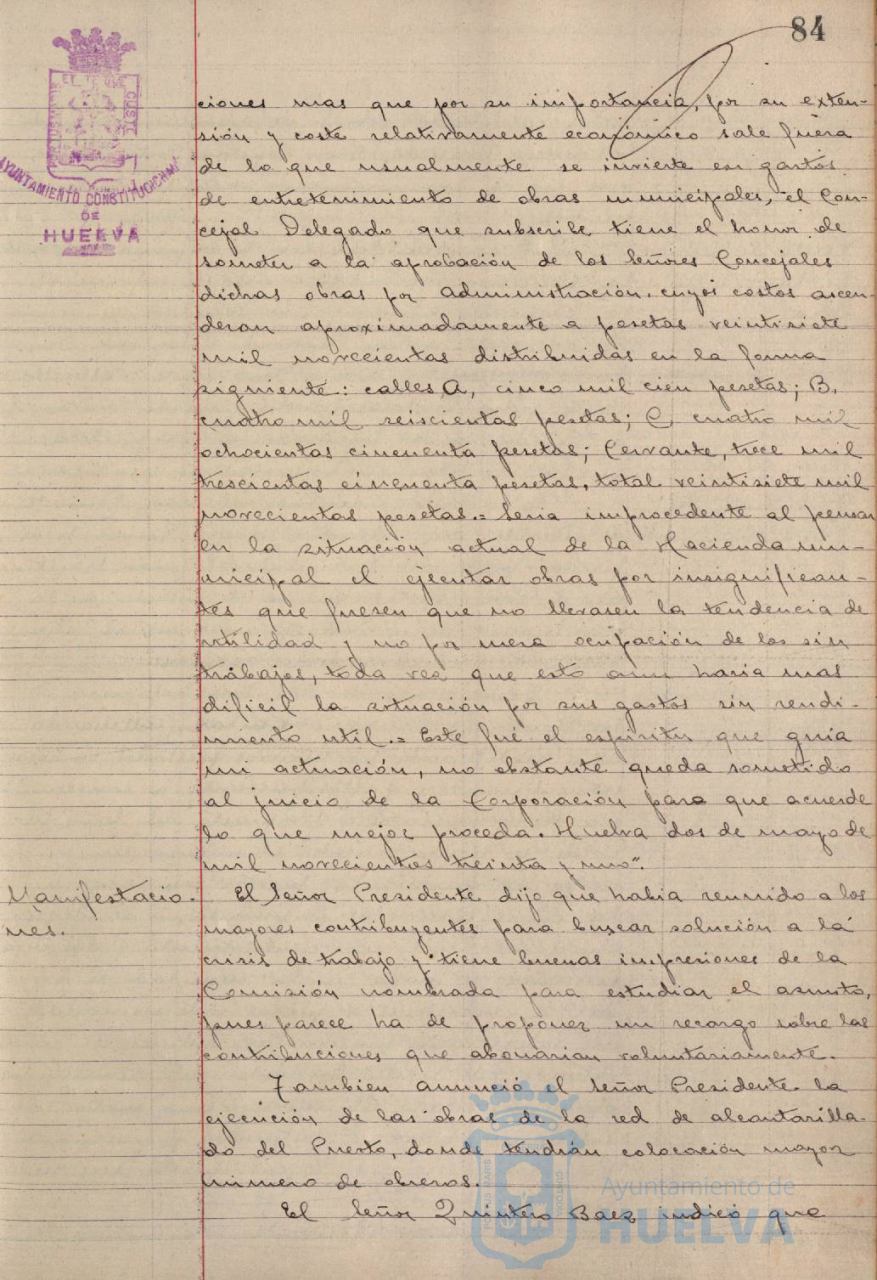 84
AYUNTAMIENTO CONSTITUCIONAL
DE
HUELVA
ciones mas que por su importancia, por su exten-
sión y coste relativamente económico sale fuera
de lo que usualmente se invierte en gastos
de entretenimiento de obras municipales, el Con-
cejal Delegado que subscribe tiene el honor de
someter a la aprobación de los Señores Concejales
dichas obras por administración, cuyos costos ascen-
deran aproximadamente a pesetas veintisiete
mil novecientas distribuidas en la forma
siguiente: calles A, cinco mil cien pesetas; B,
cuatro mil seiscientas pesetas; C, cuatro mil
ochocientas cincuenta pesetas; Cervante, trece mil
trescientas cincuenta pesetas, total veintisiete mil
novecientas pesetas.= Seria improcedente al pensar
en la situación actual de la Hacienda mu-
nicipal el ejecutar obras por insignifican-
tes que fuesen que no llevasen la tendencia de
utilidad y no por mera ocupación de los sin
trabajos, toda vez que esto aun haria mas
dificil la situación por sus gastos sin rendi-
miento util.= Este fué el espiritu que guia
mi actuación, no obstante queda sometido
al juicio de la Corporación para que acuerde
lo que mejor proceda. Huelva dos de mayo de
mil novecientos treinta y uno".
Manifestacio-
nes.
El Señor Presidente dijo que habia reunido a los
mayores contribuyentes para buscar solución a la
crisis de trabajo y tiene buenas impresiones de la
Comisión nombrada para estudiar el asunto,
pues parece ha de proponer un recargo sobre las
contribuciones que abonarian voluntariamente.
Tambien anunció el Señor Presidente la
ejecución de las obras de la red de alcantarilla-
do del Puerto, donde tendrán colocación mayor
número de obreros.
El Señor Quintero Baez indicó que
Ayuntamiento de
HUELVA